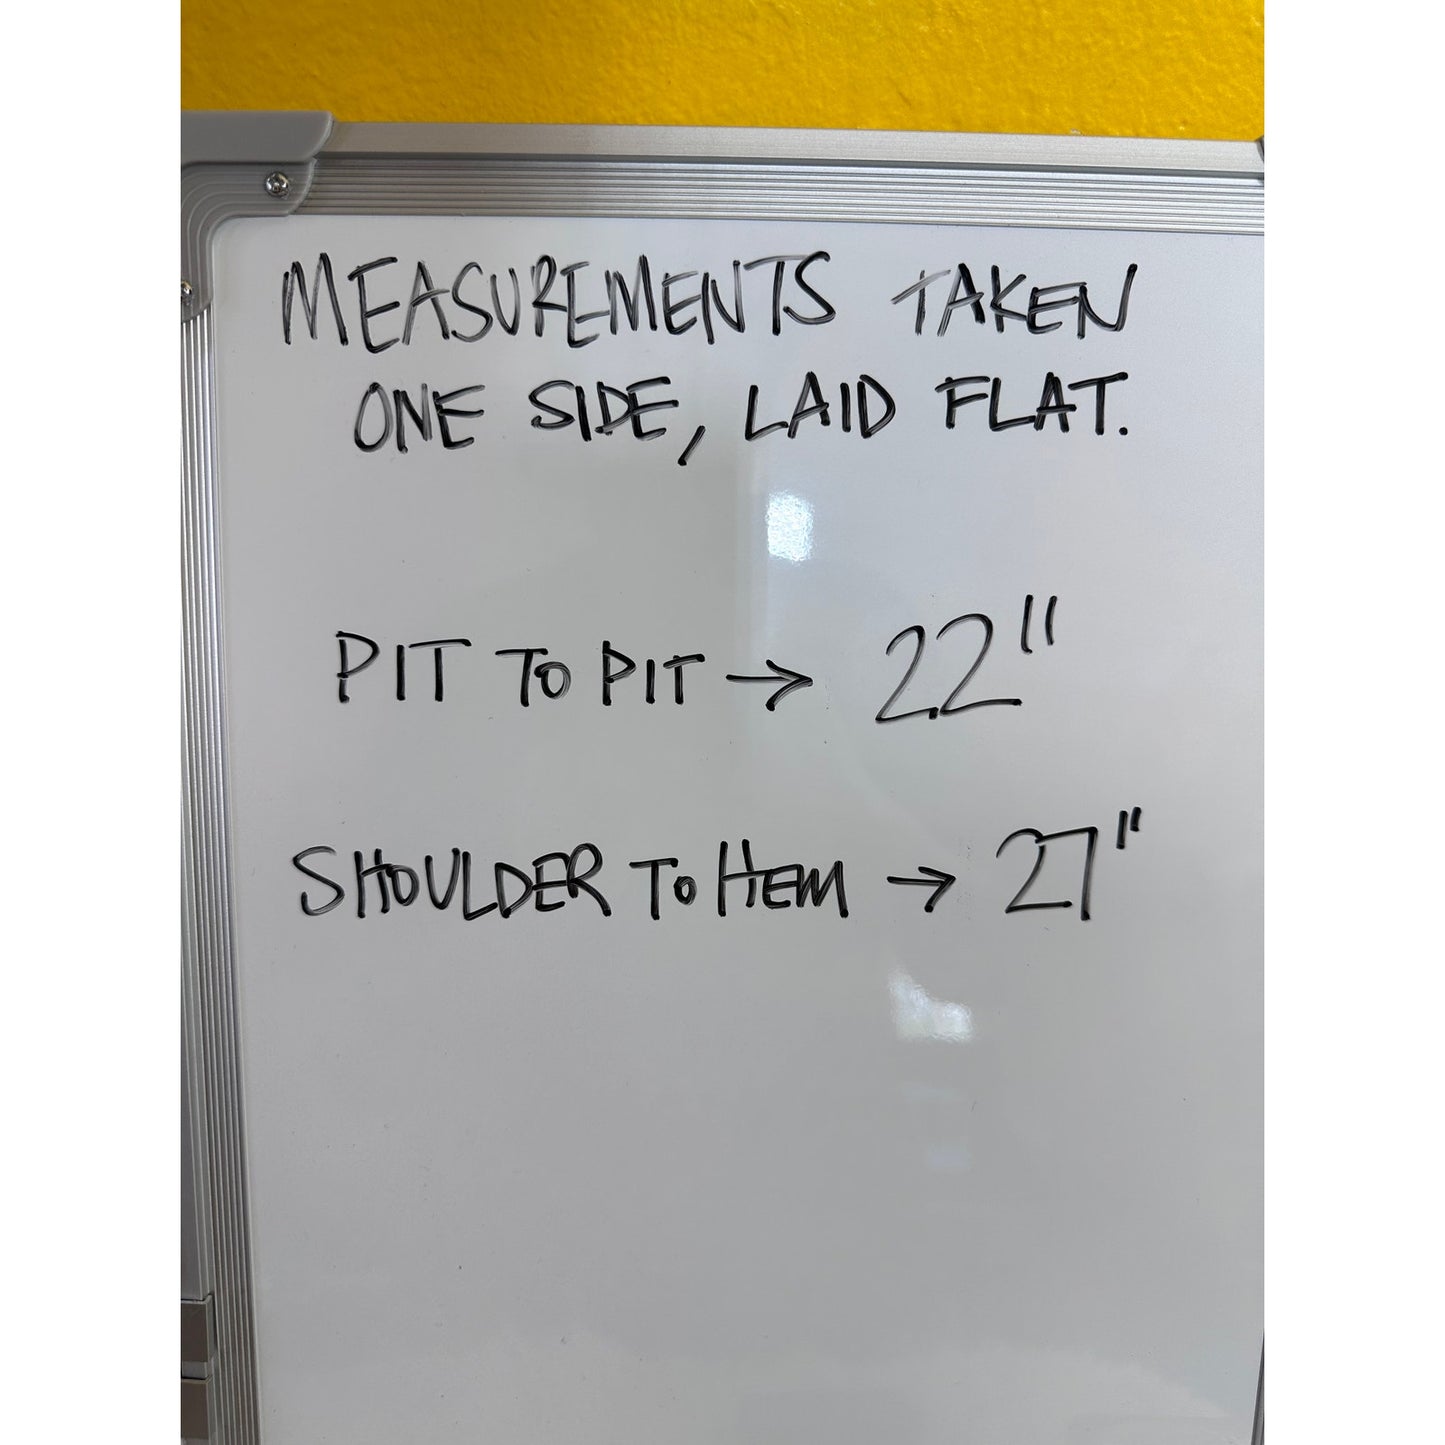 MEASUREMENTS TAKEN
ONE SIDE, LAID FLAT.
PIT TO PIT → 22"
SHOULDER TO HEM → 27"